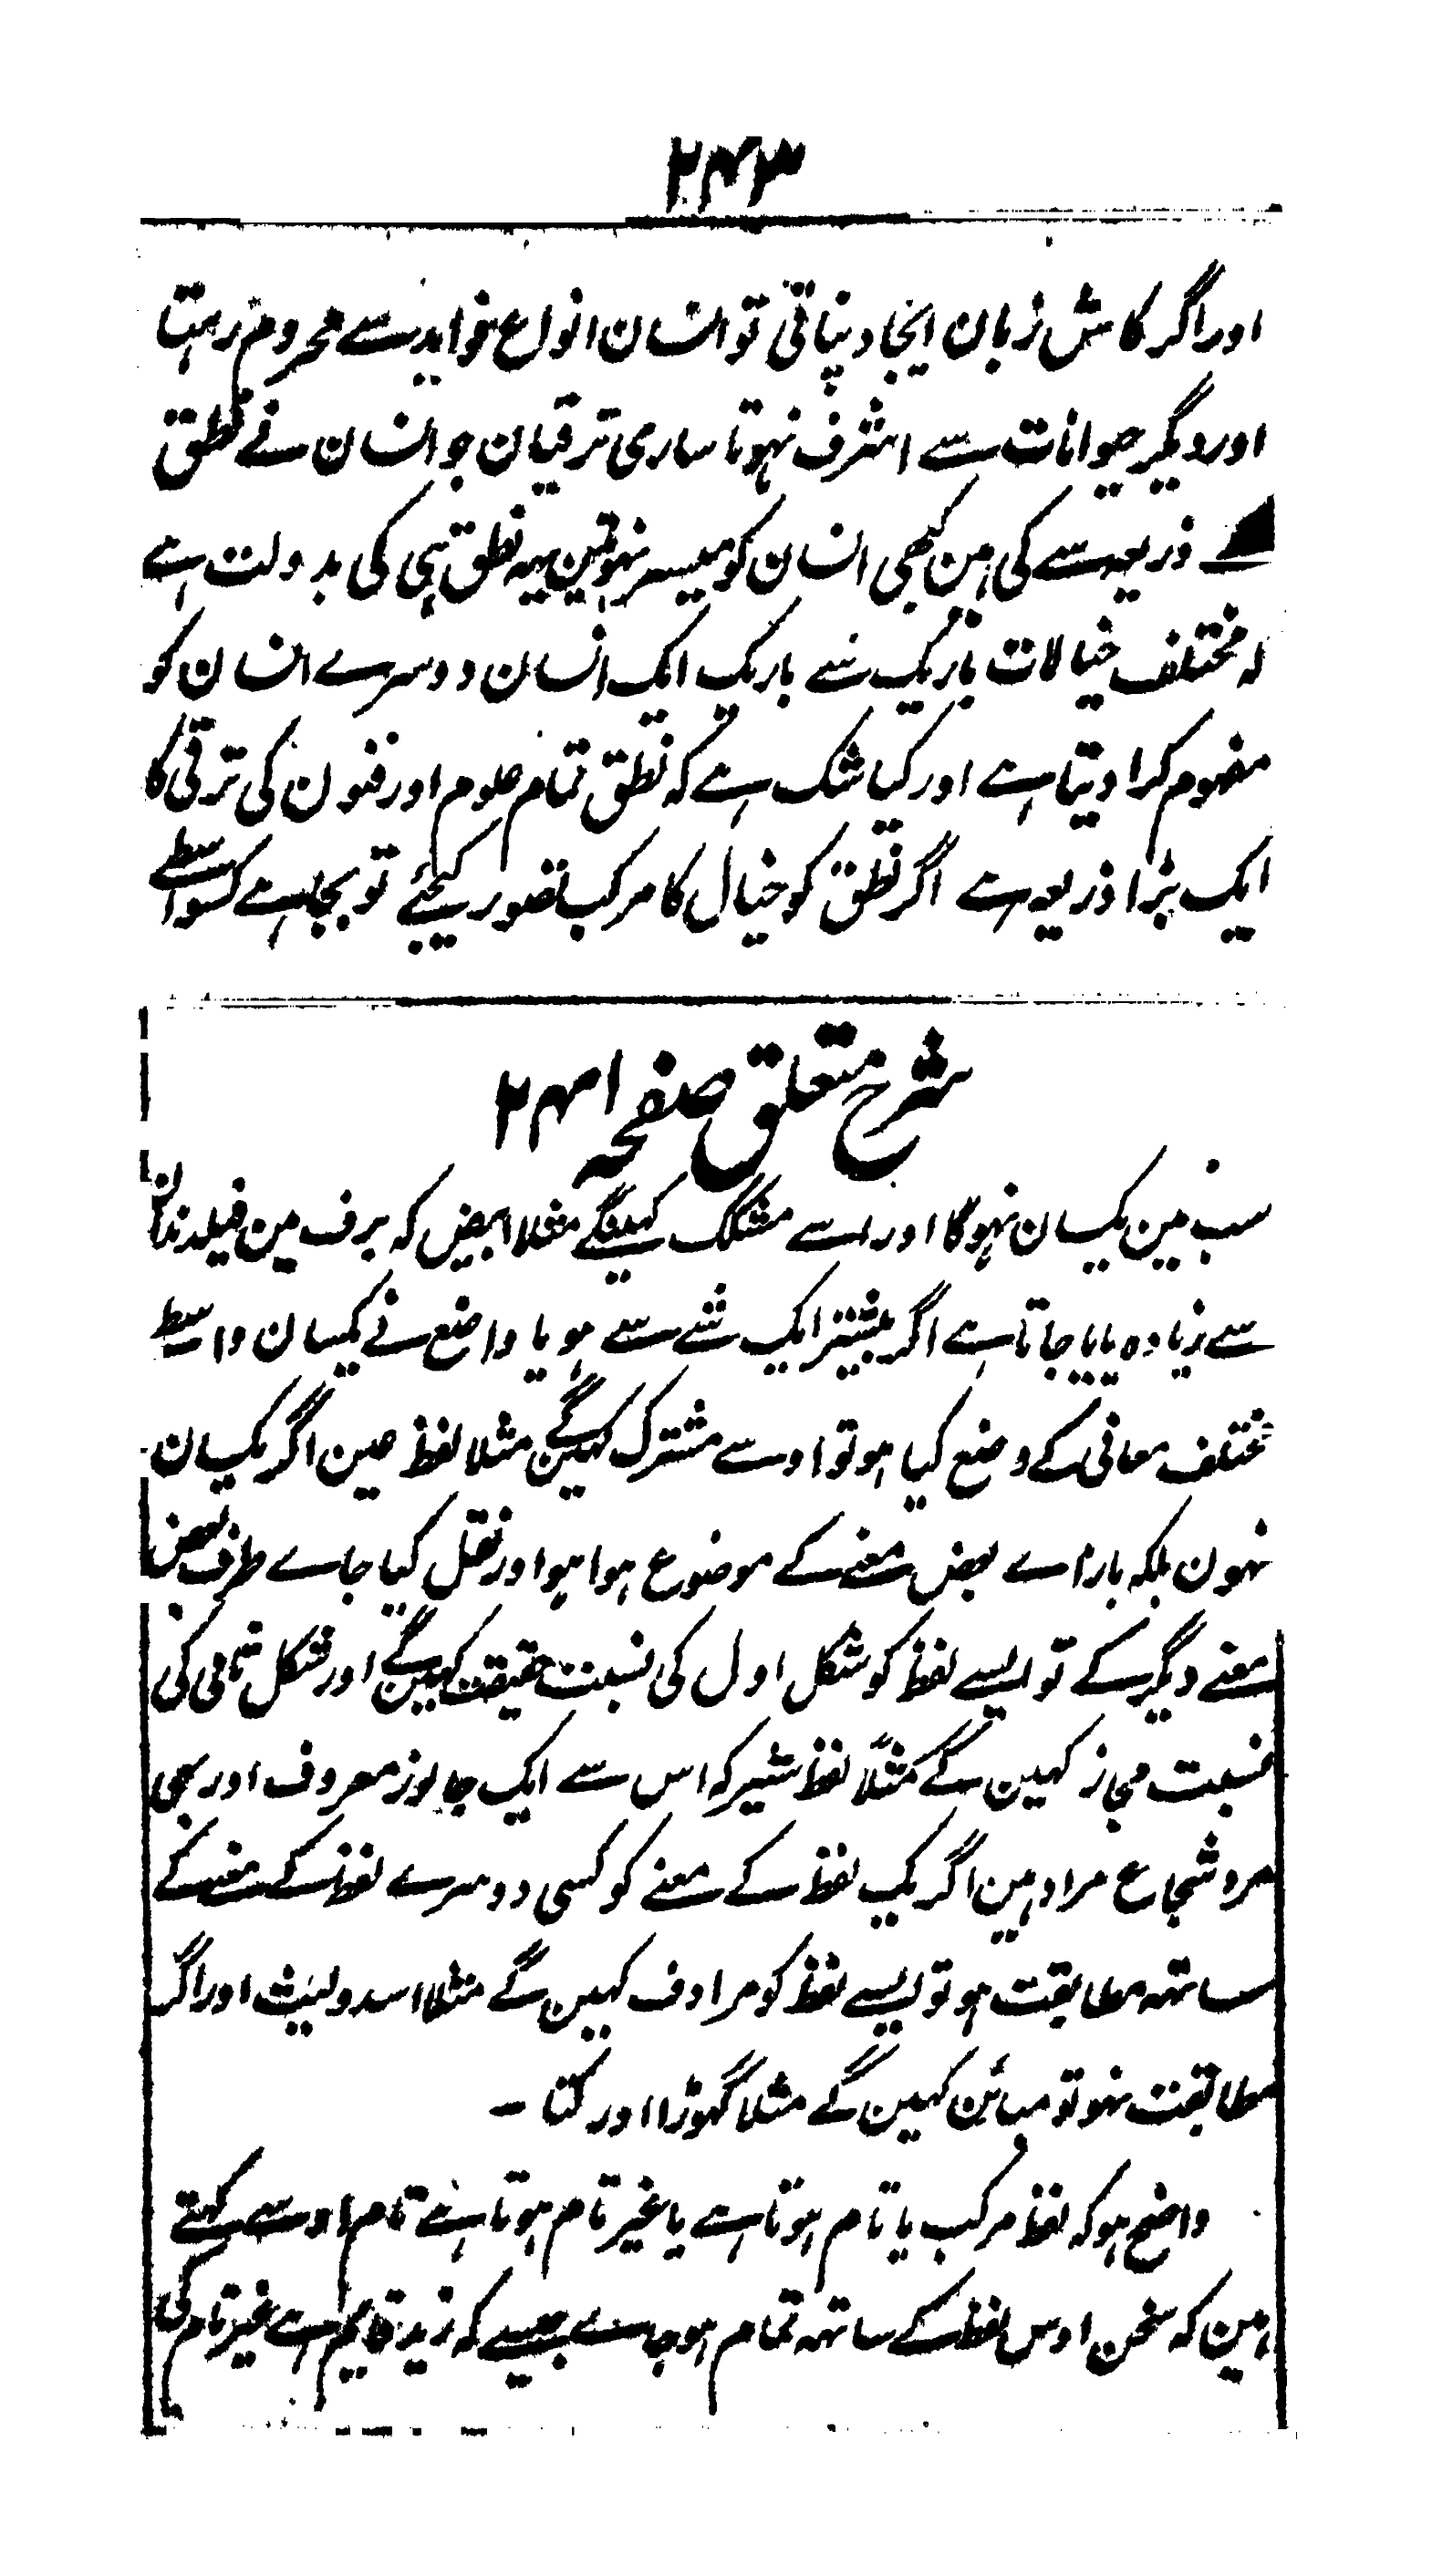 ۲۴۳
اور اگر کاش زبان ایجاد نپاتی تو انسان انواع فواید سے محروم رہتا
اور دیگر حیوانات سے اشرف نہوتا ساری ترقیان جو انسان نے نطق
کے ذریعہ سے کی ہین کبھی انسان کو میسر نہوتین یہہ نطق ہی کی بدولت ہے
کہ مختلف خیالات باریک سے باریک ایک انسان دوسرے انسان کو
مفہوم کرا دیتا ہے اور کیا شک ہے کہ نطق تمام علوم اور فنون کی ترقی کا
ایک بڑا ذریعہ ہے اگر نطق کو خیال کا مرکب تصور کیجئے تو بجا ہے کسواسطے
شرح متعلق صفحہ ۲۴۱
سب مین یکسان نہوگا اور اسے مشکک کہینگے مثلا ابیض کہ برف مین فیلدندان
سے زیادہ پایا جاتا ہے اگر بیشتر ایک شے سے ہو یا واضع نے یکسان واسطے
مختلف معانی کے وضع کیا ہو تو اوسے مشترک کہینگے مثلا لفظ عین اگر یکسان
نہون بلکہ بارا ے بعض معنے کے موضوع ہوا ہو اور نقل کیا جاے طرف بعض
معنے دیگر کے تو ایسے لفظ کو شکل اول کی نسبت حقیقت کہینگے اور شکل ثانی کی
نسبت مجاز کہین گے مثلاً لفظ شیر کہ اس سے ایک جانور معروف اور بھی
مرد شجاع مراد ہین اگر یک لفظ کے معنے کو کسی دوسرے لفظ کے معنے کے
ساتھہ مطابقت ہو تو ایسے لفظ کو مرادف کہین گے مثلا اسد و لیث اور اگر
مطابقت نہو تو مبائن کہین گے مثلا گہوڑا اور کتا -
واضح ہو کہ لفظ مرکب یا تام ہوتا ہے یا غیر تام ہوتا ہے تام اوسے کہتے
ہین کہ سخن اوس لفظ کے ساتھہ تمام ہو جاے جیسے کہ زید قایم ہے غیر تام کی